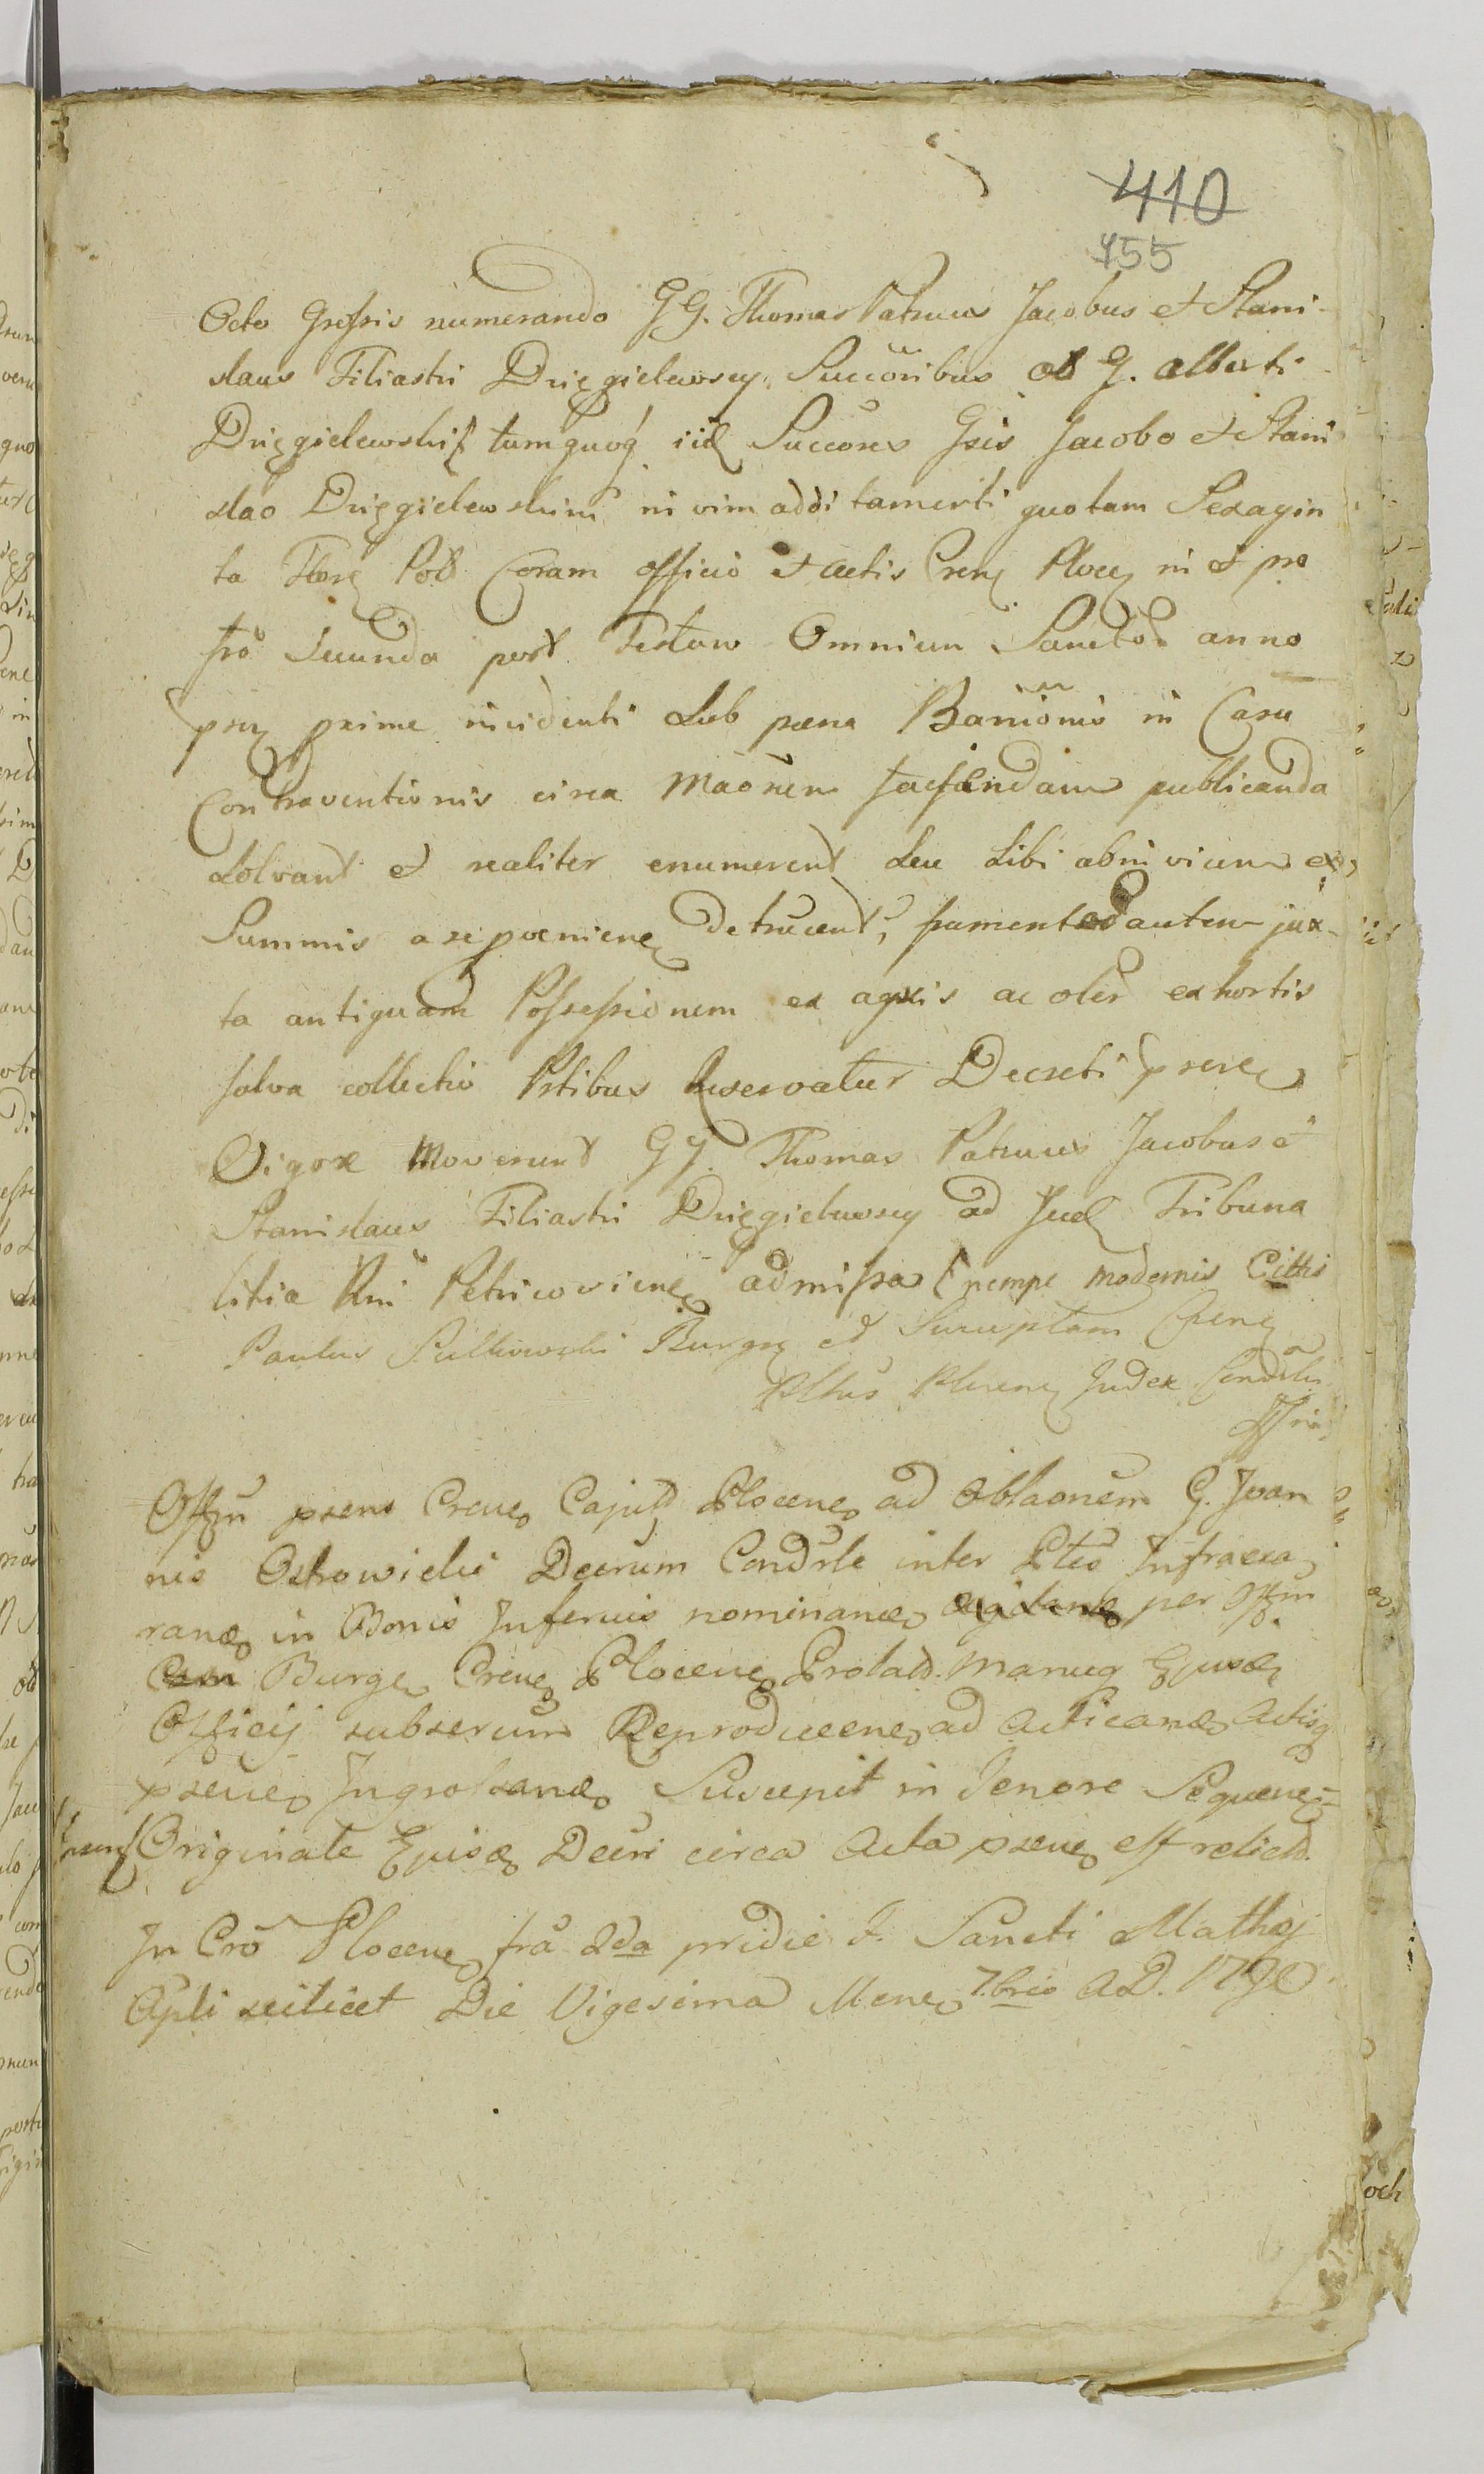 410
455
Octo Grossis numerando GG. Thomas Patruus Jacobus et Stani-
slaus Filiastri Dzięgielewscy Succoribus olt G. Alberti
Dzięgielewski tumquoq iid Succores Gsis Jacobo et Stani
slao Dzięgielewskim in vim additamenti quotam Sexagin
ta Flor Pol Coram officio et actis Cren Ploce in et pro
fro Secunda post Festum Omnium Sanctor anno
psn prime incidenti sub paena Baniōnis in Casu
Contraventionis circa Maōnem faciendam publicanda
solvant et realiter enumerent seu sibi abinvicem ex
Summis a se provenien detrucent, frumentor autem jux-
ta antiquam Possessionem ex agris ac oler ex hortis
salva collectio Ptibus reservatur Decreti psene
Vigore Moverunt GG. Thomas Patruus Jacobus et
Stanislaus Filiastri Dzięgielewscy ad Jud Tribuna
litia Rni Petricovien admissa nempe modernis Cittis
Paulus Burg et Surrogatum Cren
Pltus Plocen Judex Condesle
Offm psens Crene Capitt Plocene ad oblaonem G. Joan
nis Ostrowicki Decrum Condsrle inter Ptes Infraexa
rand in Bonis Inferius nominand per Offm
Burge Crene Plocene Prolatt. Manuq Ejusd
Officij subscrum Reproducene ad acticand actisq
psene Ingrossand Suscepit in Tenore Sequene=
Originale Ejusd Decri circa Acta psene est relictt.
In Cro Plocene fra 2da pridie F. Sancti Mathej
Apli scilicet Die Vigesima Mene 7.bris AD. 1790